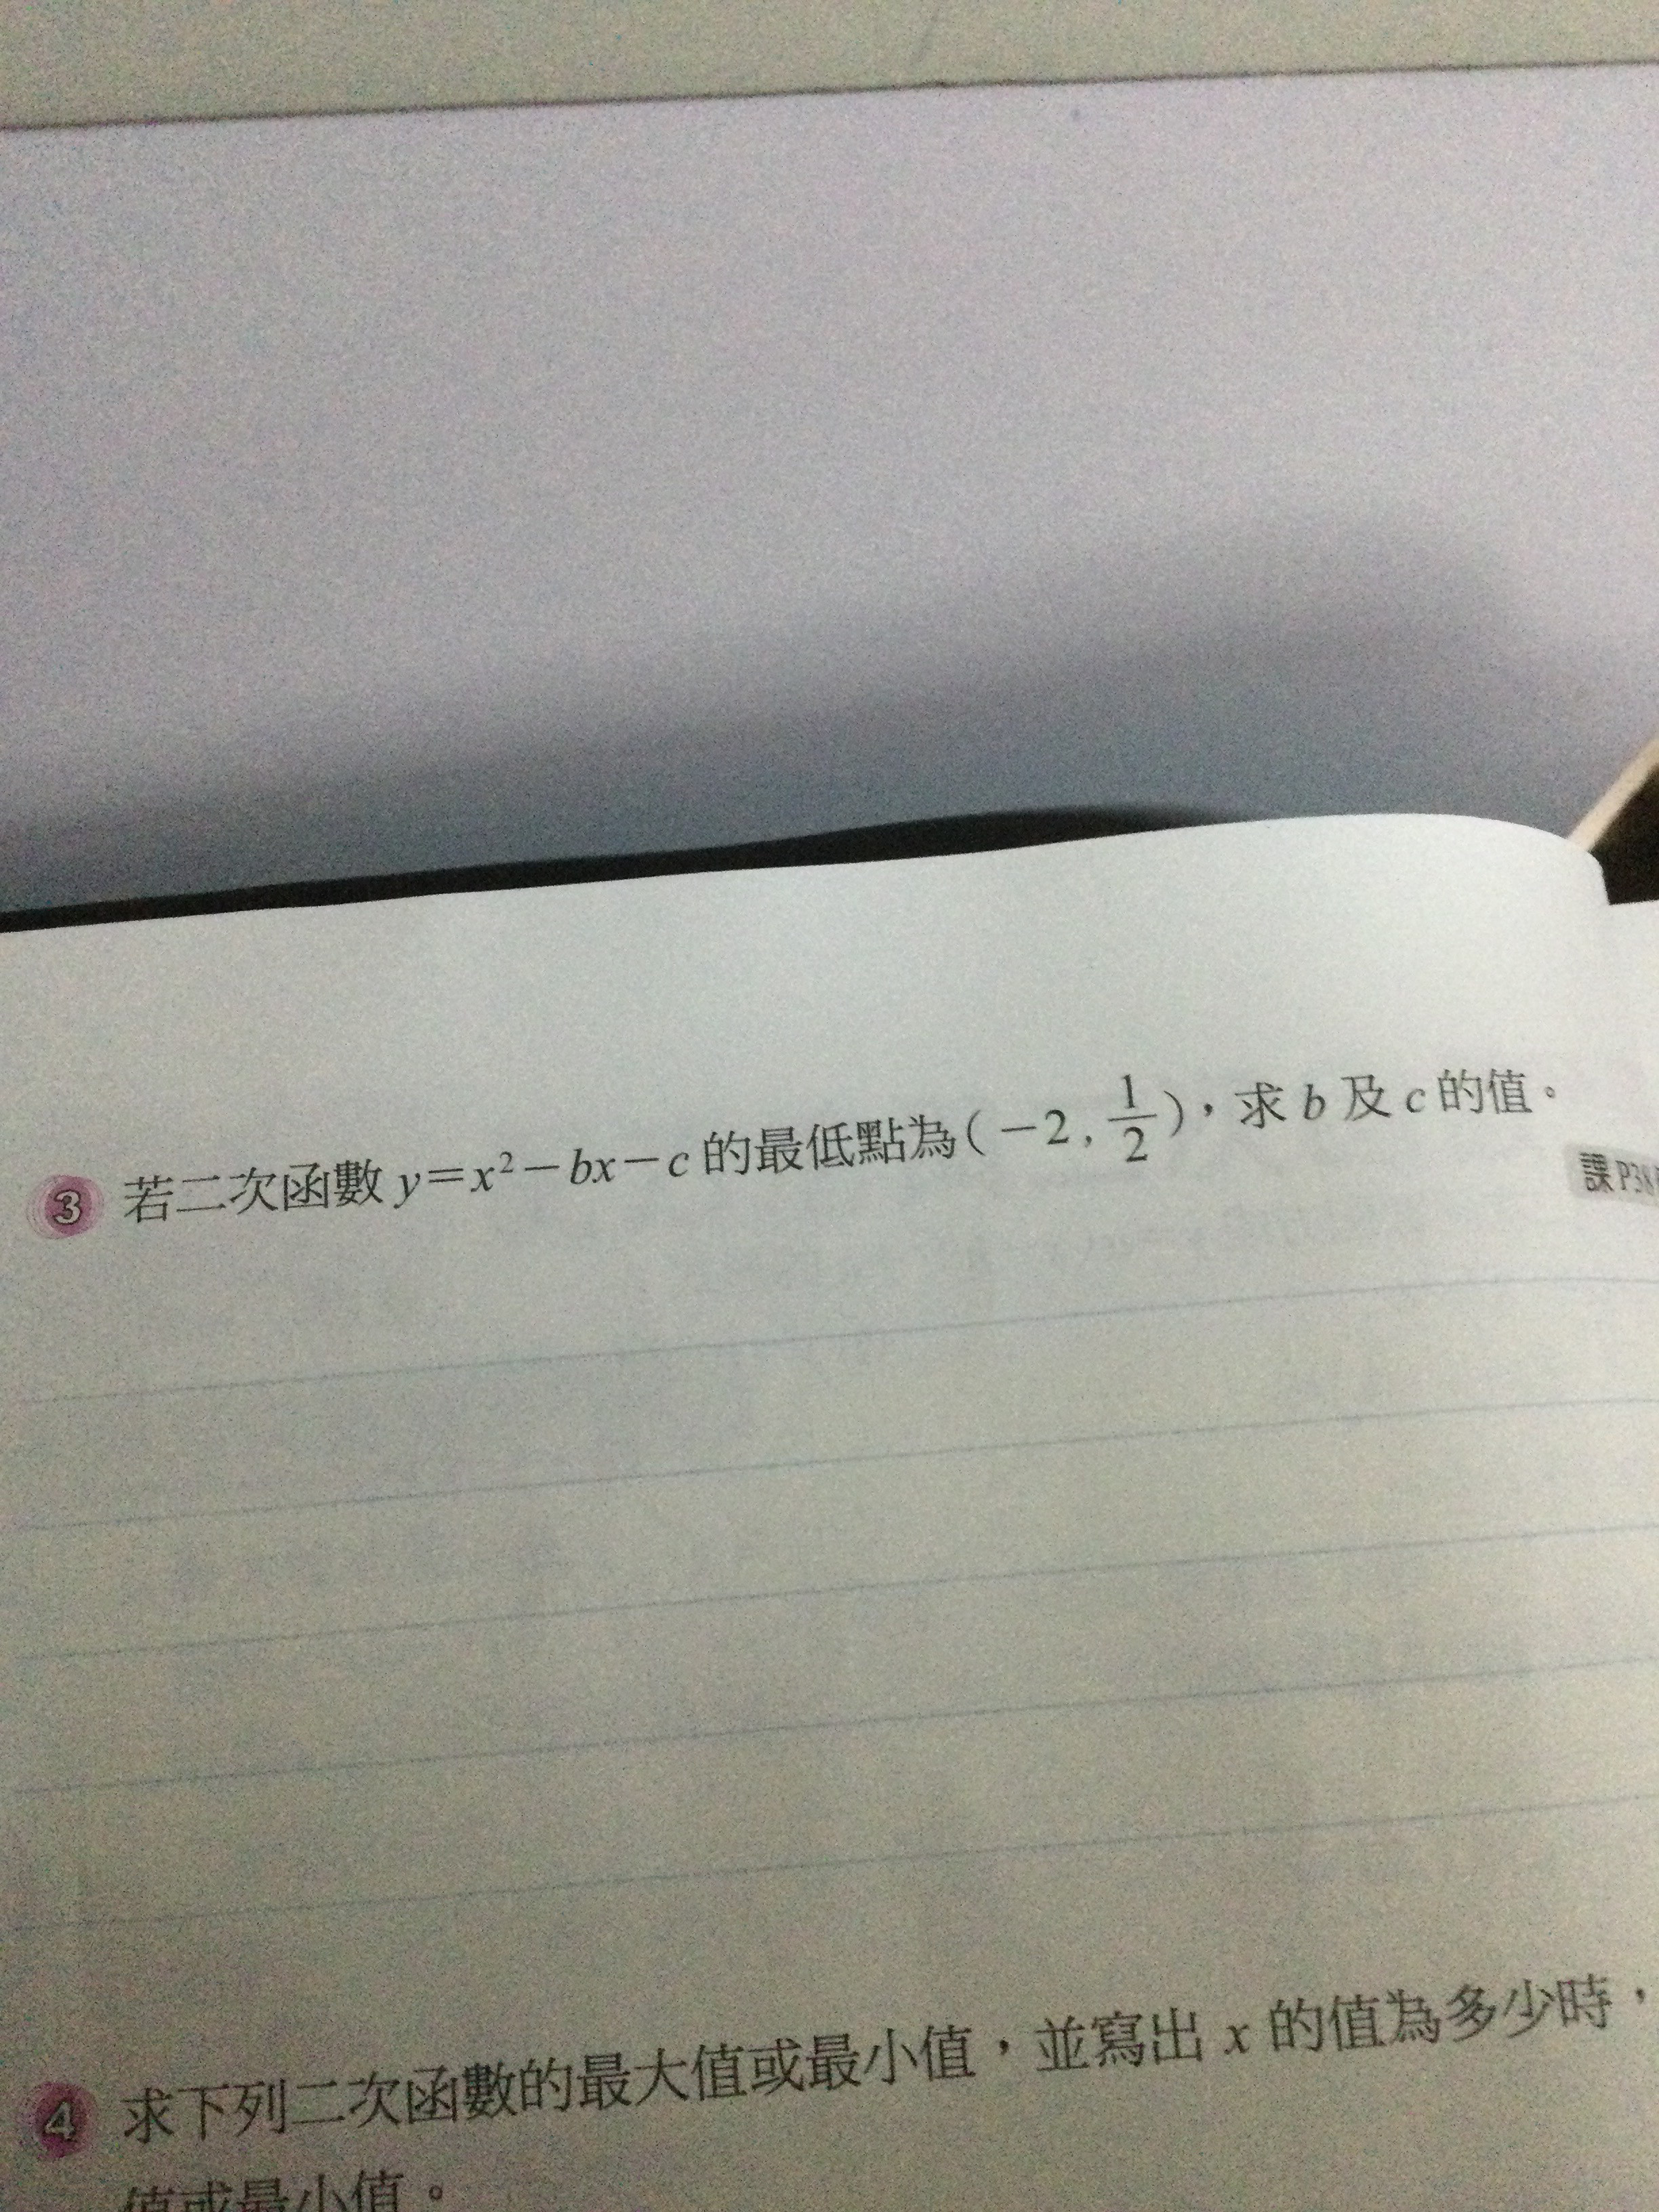 3 若二次函數 y=x²-bx-c 的最低點為(-2, 1/2)，求 b 及 c 的值。
課P38
4 求下列二次函數的最大值或最小值，並寫出 x 的值為多少時，
值或最小值。